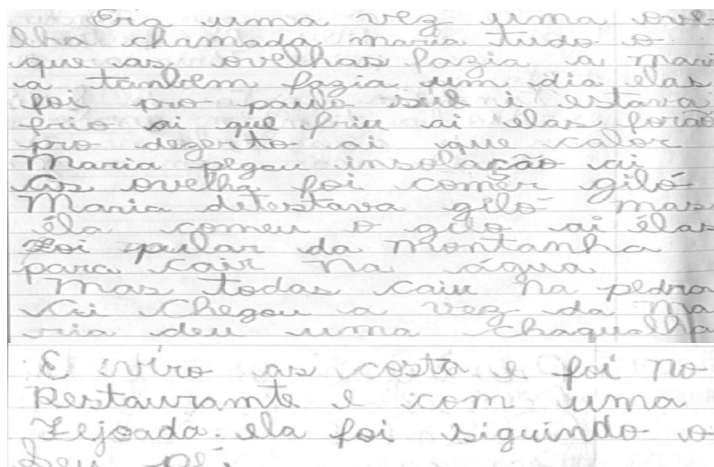 Era uma vez uma ove
lha chamada maria tudo o
que as ovelhas fazia a mari
a tanbem fazia um dia elas
foi pro paulo sul i estava
frio ai que friu ai elas forão
pro dezerto ai que calor
Maria pegou insolação ai
As ovelha foi comer giló
Maria detestava giló mas
éla comeu o giló ai élas
Foi pular da montanha
para cair na água
Mas todas caiu na pedra
Ai chegou a vez da Ma
ria deu uma chaqualha
E viro as costa e foi no
Restaurante e com uma
Fejoada. ela foi siguindo o
Seu pé.